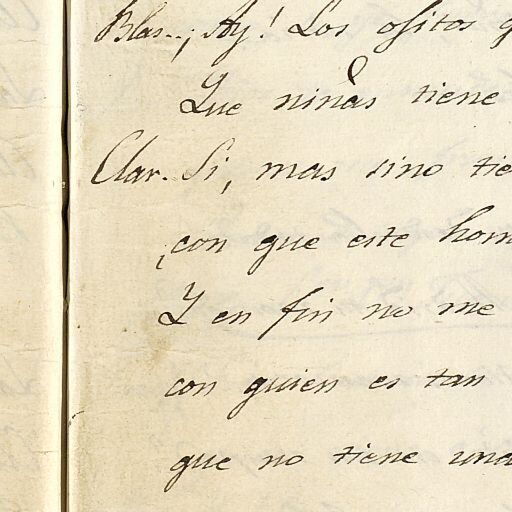 Blas.. ¡Ay! Los ositos
Que niñas tiene
Clar. Si, mas sino tie
¿con que este hom
Y en fin no me
con quien es tan
que no tiene una